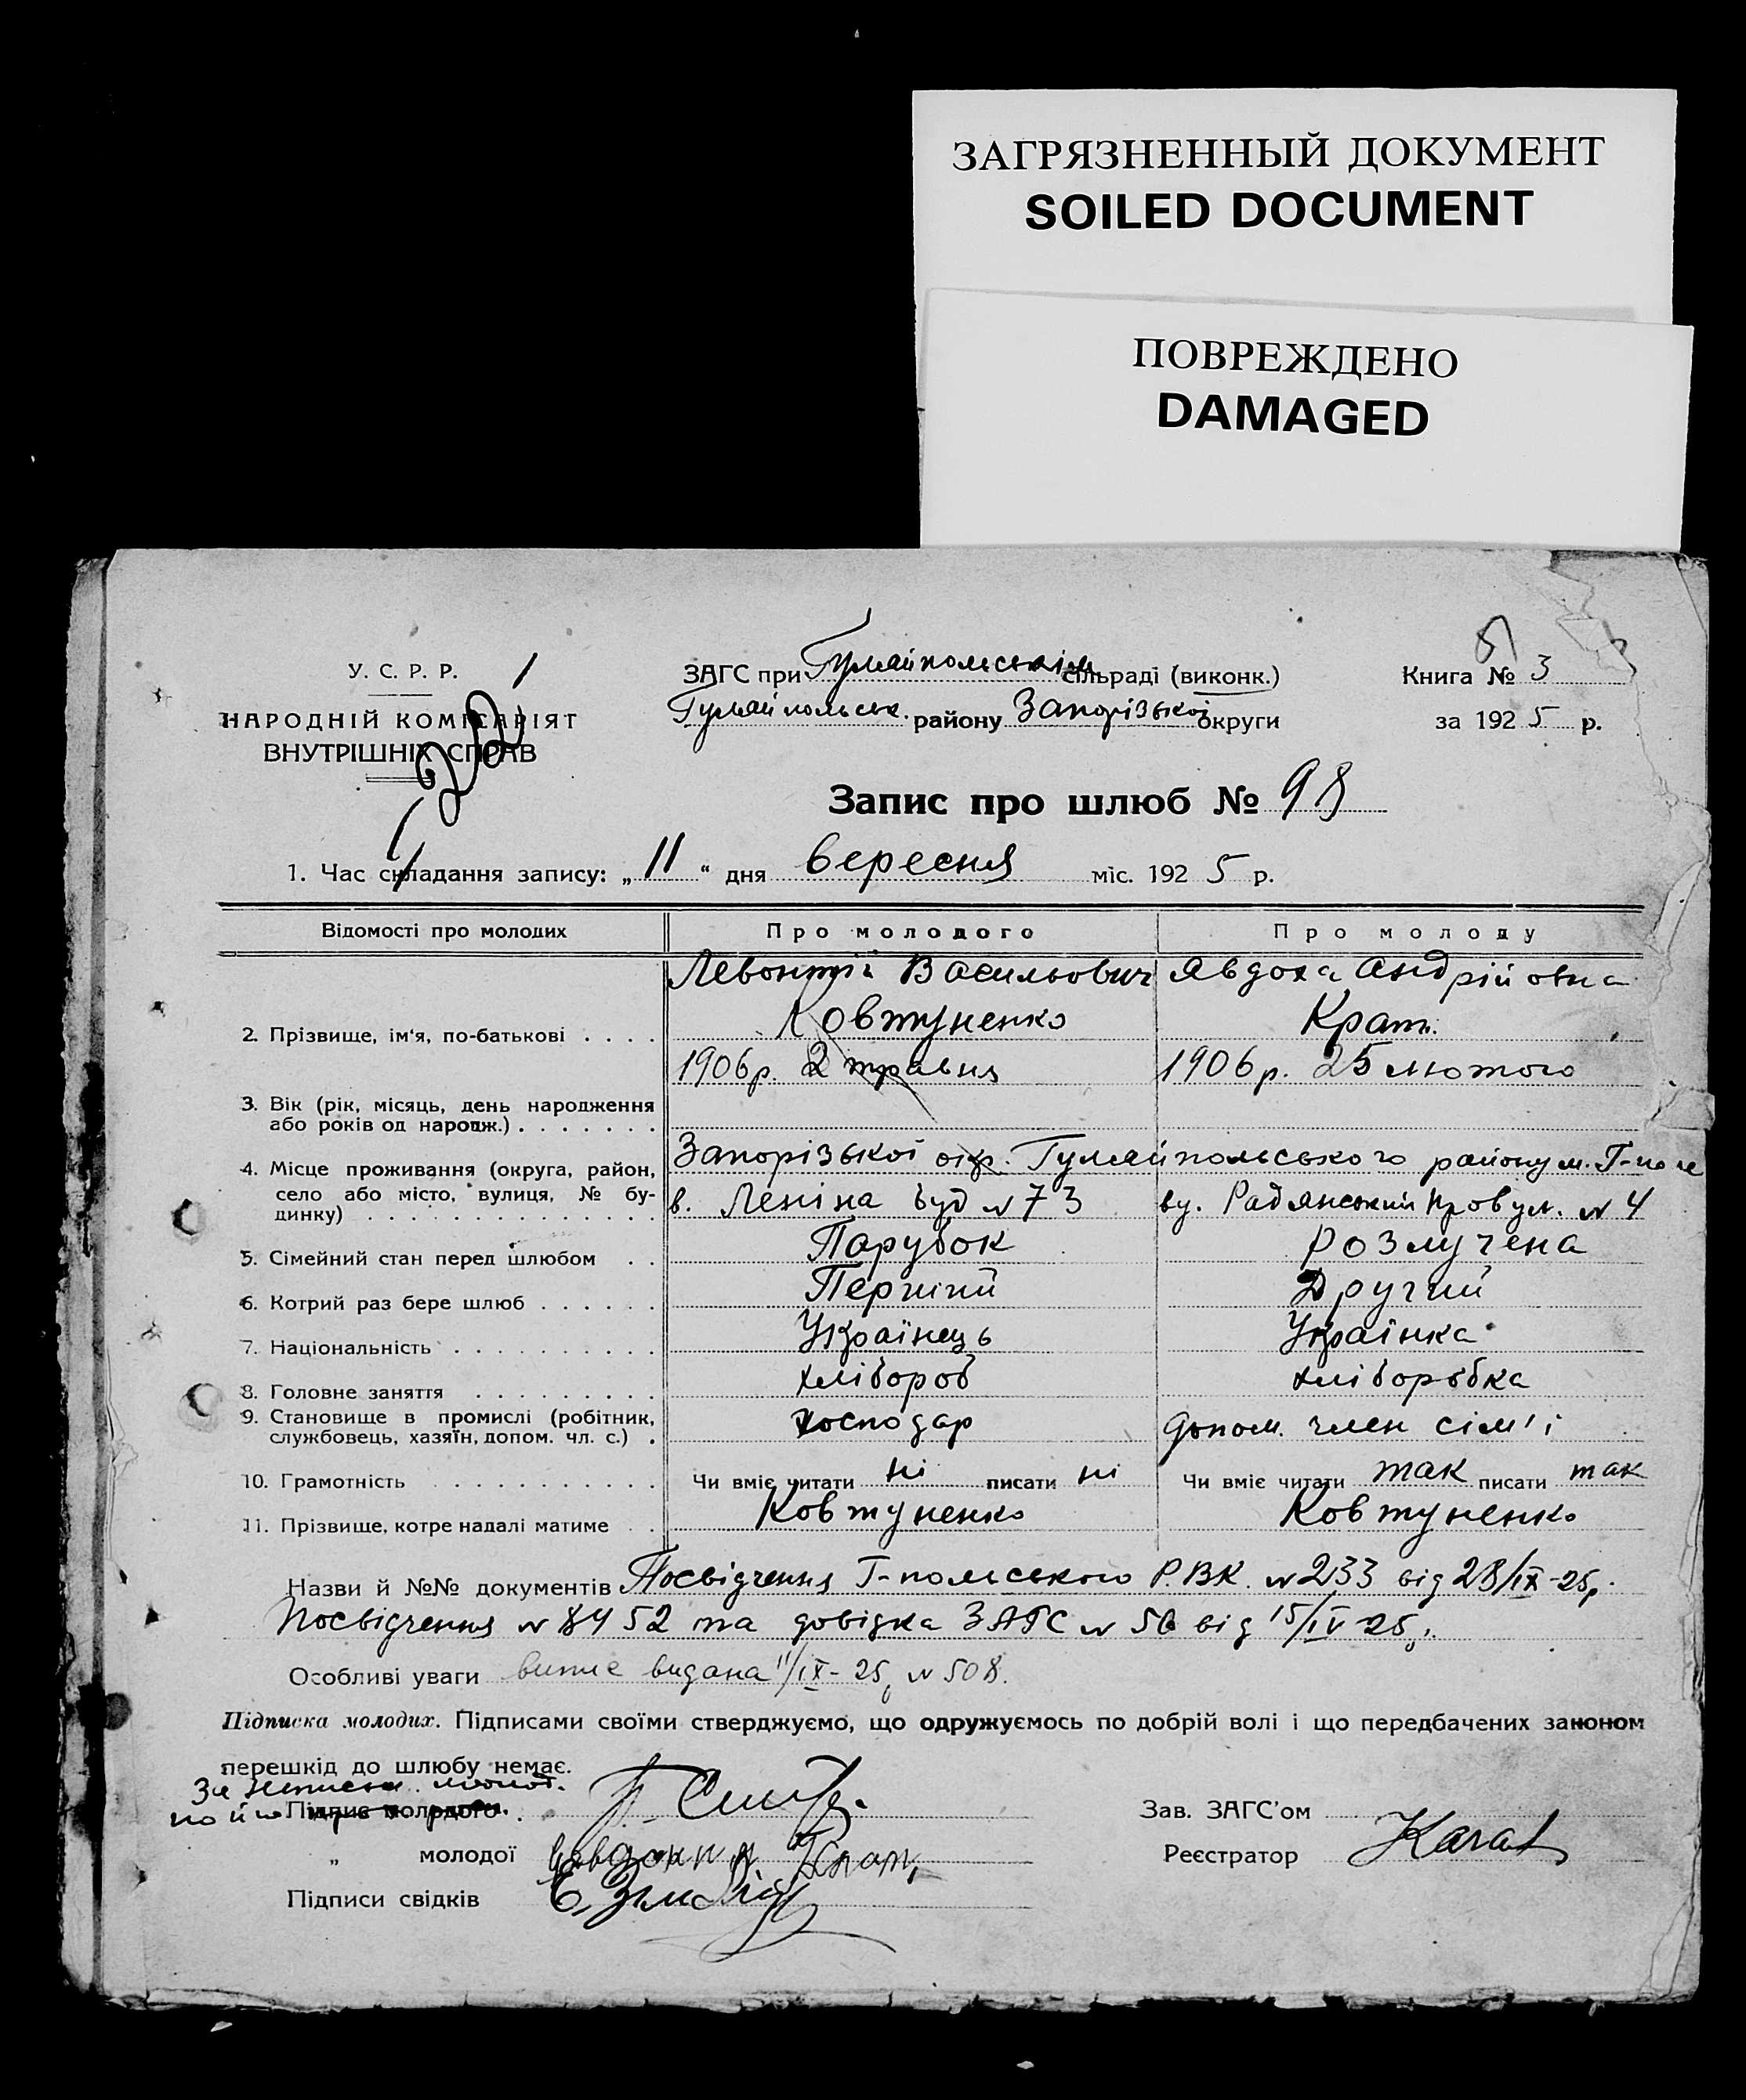 ЗАГРЯЗНЕННЫЙ ДОКУМЕНТ
SOILED DOCUMENT
ПОВРЕЖДЕНО
DAMAGED
У. С. Р. Р.
НАРОДНІЙ КОМІСАРІЯТ
ВНУТРІШНІХ СПРАВ
ЗАГС при Гуляйпольськім сільраді (виконк.)
Гуляйпольськ. району Запорізької округи
Книга № 3
за 1925 р.
Запис про шлюб № 98
1. Час складання запису: „11“ дня вересня міс. 1925 р.
Відомості про молодих Про молодого Про молоду
Левонтій Васильович Явдоха Андрійовна
2. Прізвище, ім'я, по-батькові . . . . Ковтуненко Крат.
1906р. 2 травня 1906р. 25 лютого
3. Вік (рік, місяць, день народження
або років од народж.) . . . . . . .
Запорізької окр. Гуляйпольського району м. Г-поле
4. Місце проживання (округа, район,
село або місто, вулиця, № бу-
динку) . . . . . . . . . . . . . . в. Леніна буд № 73 ву. Радянський провул. № 4
5. Сімейний стан перед шлюбом . . Парубок Розлучена
6. Котрий раз бере шлюб . . . . . . Перший Другий
7. Національність . . . . . . . . . . Українець Українка
8. Головне заняття . . . . . . . . . хлібороб хліборобка
9. Становище в промислі (робітник,
службовець, хазяїн, допом. чл. с.) . господар допом. член сім'ї
10. Грамотність . . . . . . . . . . . Чи вміє читати ні писати ні Чи вміє читати так писати так
11. Прізвище, котре надалі матиме . . Ковтуненко Ковтуненко
Назви й №№ документів Посвідчення Г-польського Р.В.К. № 233 від 28/IX-25р.
Посвідчення № 8452 та довідка ЗАГС № 56 від 15/IV 25р.
Особливі уваги видана 11/IX-25р № 508.
Підписка молодих. Підписами своїми стверджуємо, що одружуємось по добрій волі і що передбачених законом
перешкід до шлюбу немає.
Підпис молодого . .
„ молодої Крат
Підписи свідків
Зав. ЗАГС'ом
Реєстратор